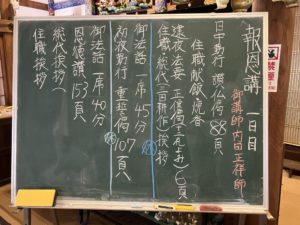 報恩講 一日目
御講師 内田正祥師
日中勤行 讃仏偈 88頁
住職献飯焼香
逮夜法要 正信偈 七頁
住職、総代 挨拶
御法話 一席 45分
初夜勤行 重誓偈 107頁
御法話 一席 40分
恩徳讃 153頁
総代挨拶
住職挨拶
禁煙